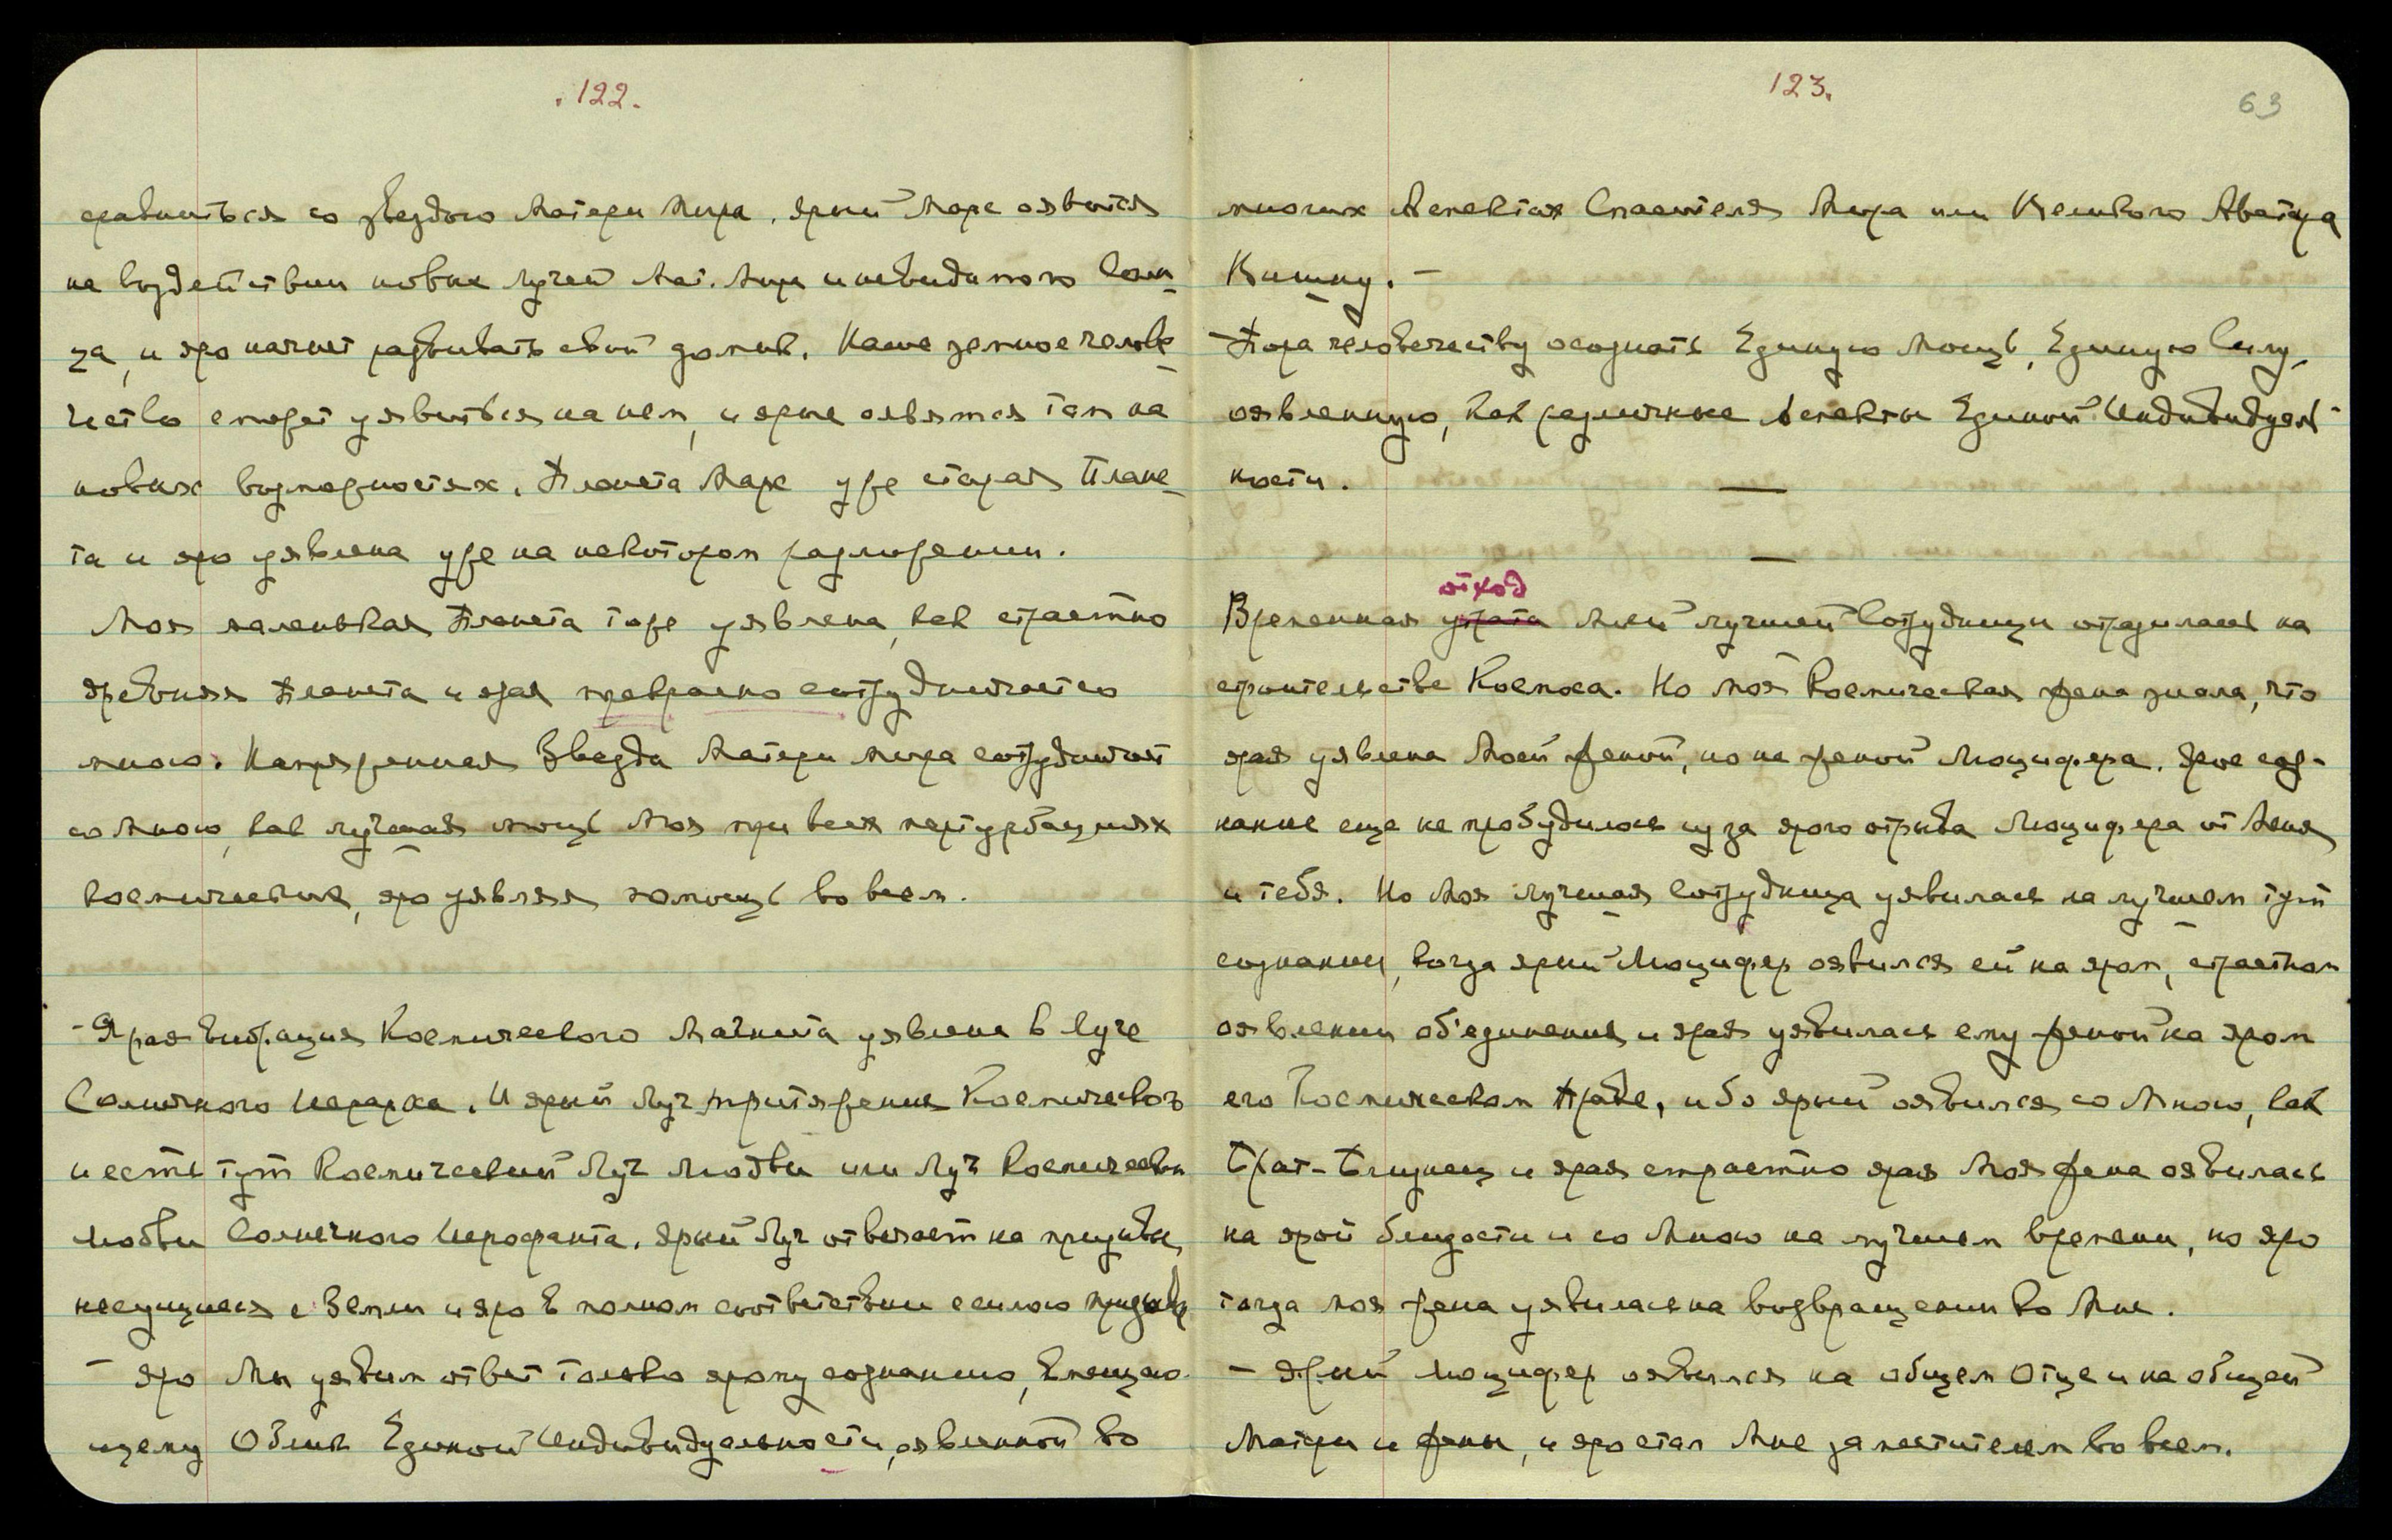 .122.
сравниться со звездою Матери Мира. Ярый Марс оявится
на воздействии новых лучей Мат. Мира и невидимого Солн-
ца, и яро начнет развивать свой домик. Наше земное челове-
чество сможет уявиться на нем, и ярые оявятся там на
новых возможностях. Планета Марс уже старая Плане-
та и яро уявлена уже на некотором разложении.
Моя маленькая Планета тоже уявлена, как страстно
древняя Планета и ярая прекрасно сотрудничает со
мною. Напряженная Звезда Матери Мира сотрудничает
со Мною, как лучшая мощь Моя при всех пертурбациях
космических, яро уявляя помощь во всем.
- Ярая вибрация Космического Магнита уявлена в Луче
Солнечного Иерарха. И ярый Луч притяжения Космического
и есть тут Космический Луч Любви или Луч Космической
Любви Солнечного Иерофанта. Ярый Луч отвечает на призывы,
несущиеся с Земли и яро в полном соответствии с силою призыва.
- Яро Мы уявим ответ только ярому сознанию, вмещаю-
щему Облик Единой Индивидуальности, оявленной во
123.
63
многих Аспектах Спасителя Мира или Великого Аватара
Вишну. -
- Пора человечеству осознать Единую Мощь, Единую Силу,
оявленную, как различные Аспекты Единой Индивидуаль-
ности.
отход
Временная утрата Моей лучшей Сотрудницы отразилась на
строительстве Космоса. Но моя Космическая жена знала, что
ярая уявлена Моей женой, но не женой Люцифера. Ярое соз-
нание еще не пробудилось из за ярого отрыва Люцифера от Меня
и тебя. Но Моя лучшая Сотрудница уявилась на лучшем тут
сознании, когда ярый Люцифер оявился ей на яром, страстном
оявлении об'единения, и ярая уявилась ему женой на яром
его Космическом Праве, ибо ярый оявился со Мною, как
Брат-Близнец и ярая страстно ярая Моя жена оявилась
на ярой близости и со Мною на лучшем времени, но яро
тогда моя жена уявилась на возвращении ко Мне.
- Ярый Люцифер оявился на общем Отце и на общей
Матери и жены, и яро стал Мне заместителем во всем.